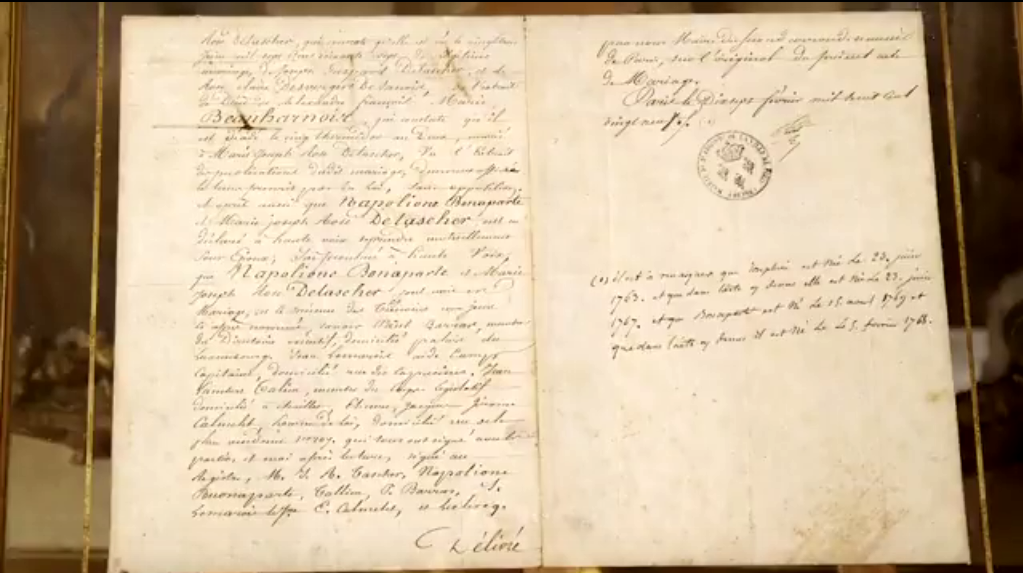 Rose Detascher, qui constate qu'elle est née le vingt trois
juin mil sept cent soixante sept, de légitime
mariage, de Joseph Gaspard Detascher, et de
Rose claire Desvergers De Sanois, de l'extrait
de Décès de alexandre françois Marie
Beauharnois, qui constate qu'il
est décédé le cinq thermidor an Deux, marié
à Marie Joseph Rose Detascher, Vu l'Extrait
des publications dudit mariage, Dument affichée
le tems prescrit par la loi, Sans opposition,
et après aussi que Napolione Bonaparte
et Marie joseph Rose Detascher, ont eu
déclaré à haute voix se prendre mutuellement
pour Epoux, J'ai prononcé à haute Voix,
que Napolione Bonaparte et Marie
joseph Rose Detascher sont unis en
Mariage, et ce en présence des témoins majeurs
ci après nommés, Savoir Paul Barras, membre
du Directoire exécutif, domicilié palais du
Luxembourg, Jean Lemarois aide De camp
Capitaine, domicilié rue des capucines, Jean
Lambert Talien, membre du Corps législatif
domicilié à chaillot, Etienne, Jacques Jérome
Calmelet homme de loi, domicilié rue de
place vendome n° 207, qui tous ont signé avec les
parties, et moi après lecture, signé au
Registre, M. J. R. Tascher, Napolione
Buonaparte, Tallien, P. Barras, J.
Lemarois le Jne E. Calmelet, et Leclercq.
Délivré
par nous Maire du second arrondissement
de Paris, sur l'original du présent acte
de Mariage.
Paris le Dixsept février mil huit cent
vingt neuf.
(1) il est à remarquer que Joséphine est née le 23. juin
1763. et que dans l'acte ci dessus elle est née le 23. juin
1767. et que Bonaparte est né le 15. août 1769 et
que dans l'acte ci dessus il est né le 5. février 1768.